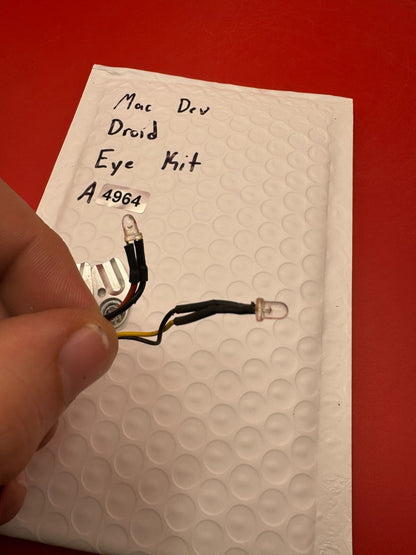 Mac Drv
Droid
Eye Kit
A 4964